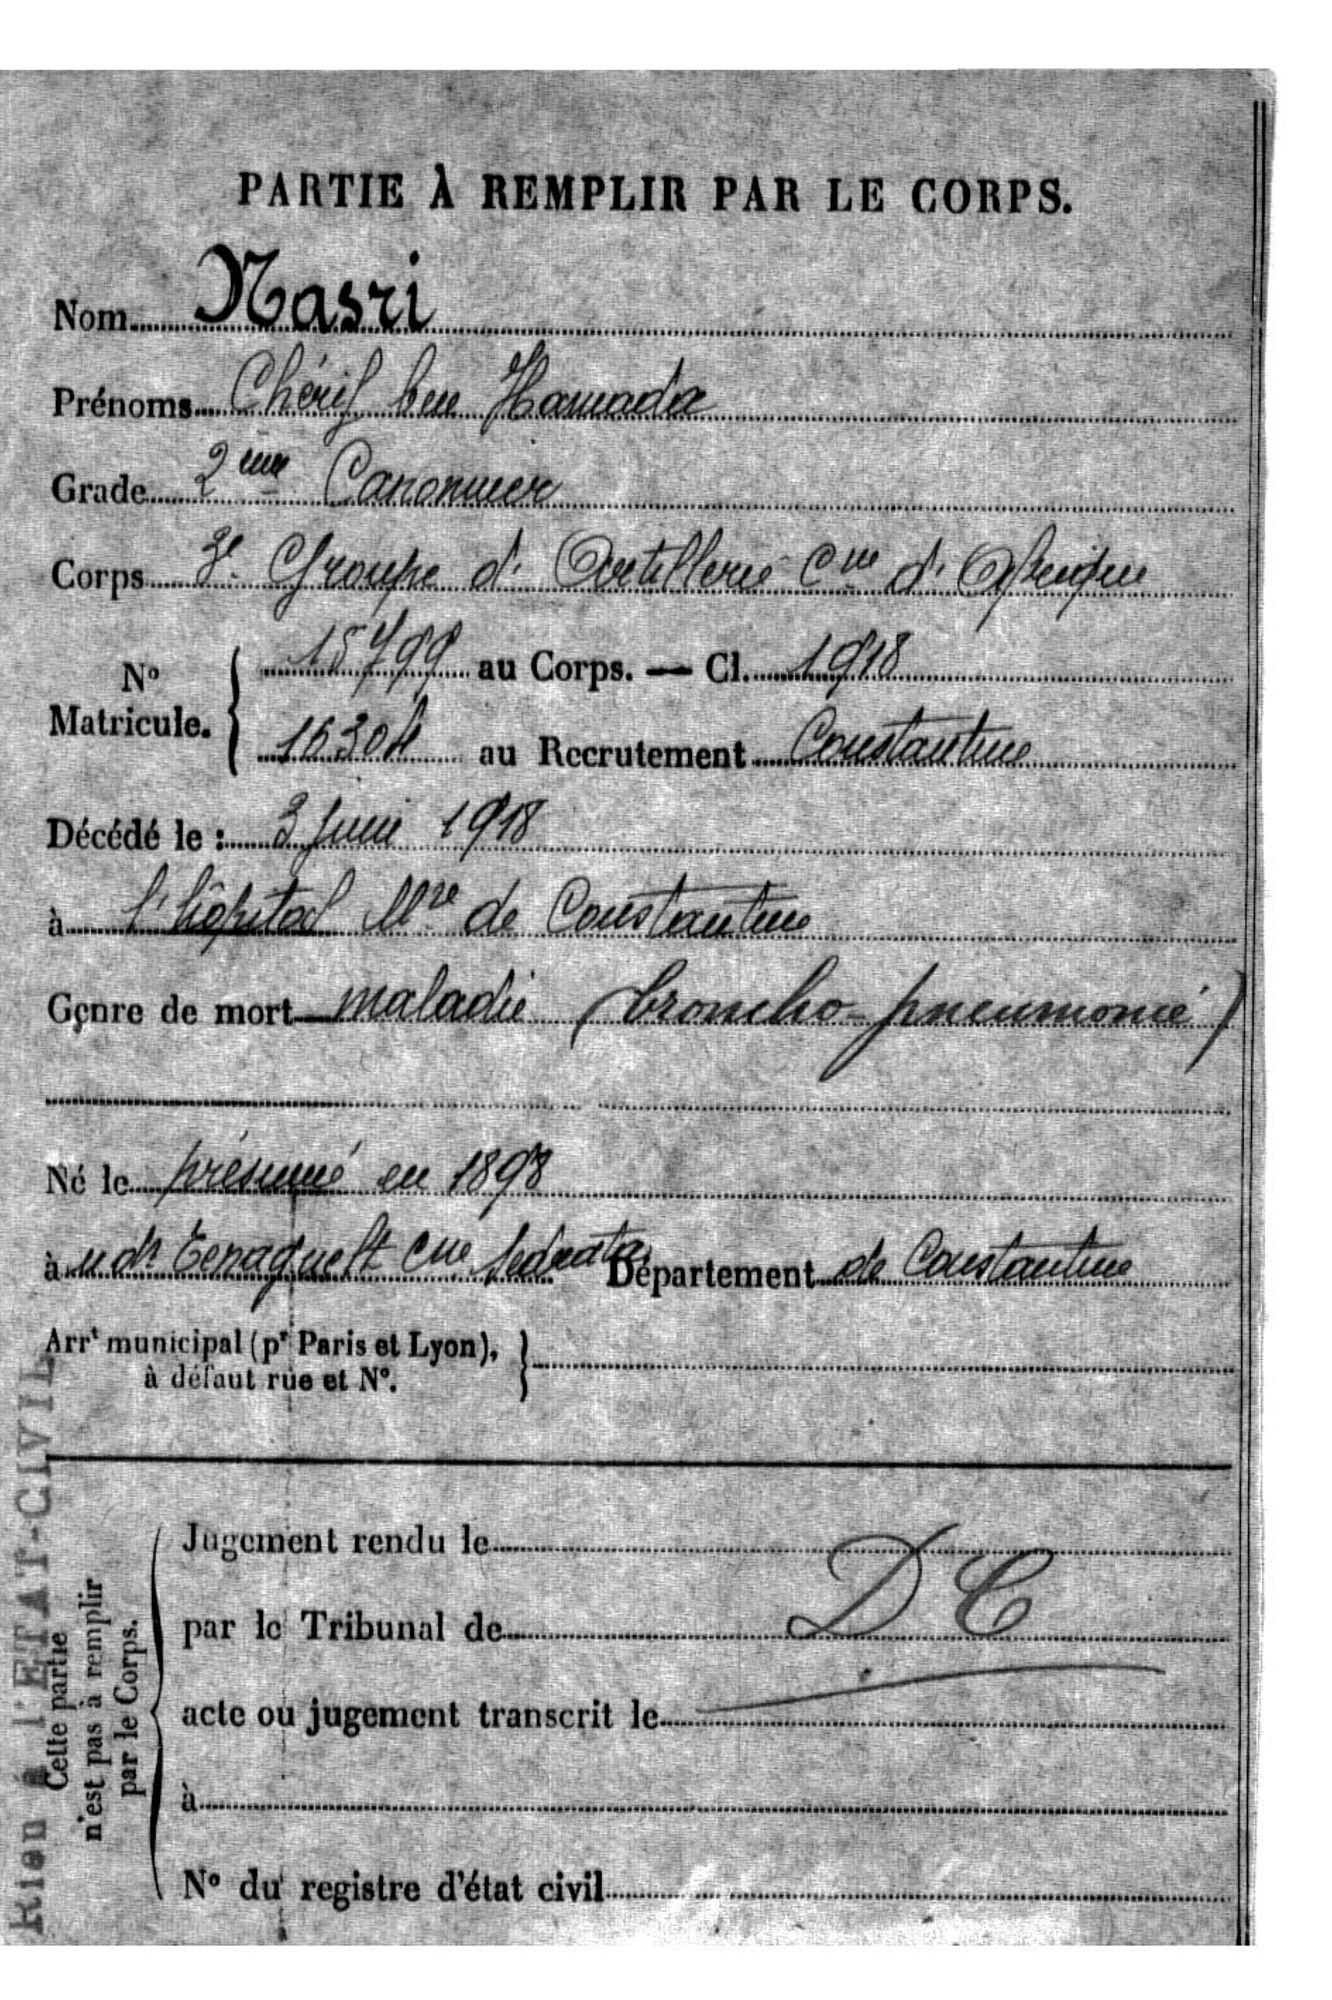 PARTIE À REMPLIR PAR LE CORPS.
Nom Nasri
Prénoms Chérif ben Hamada
Grade 2eme Canonnier
Corps 3e Groupe d'Artillerie Cne d'Afrique
No Matricule. 15799 au Corps. — Cl. 1918
16304 au Recrutement Constantine
Décédé le : 3 Juin 1918
à l'hôpital Mre de Constantine
Genre de mort maladie (broncho-pneumonie)
Né le présumé en 1898
à cne Sedrata Département de Constantine
Arrt municipal (pr Paris et Lyon),
à défaut rue et No.
Jugement rendu le
par le Tribunal de D C
acte ou jugement transcrit le
à
No du registre d'état civil
Cette partie
n'est pas à remplir
par le Corps.
Rien à l'ETAT-CIVIL